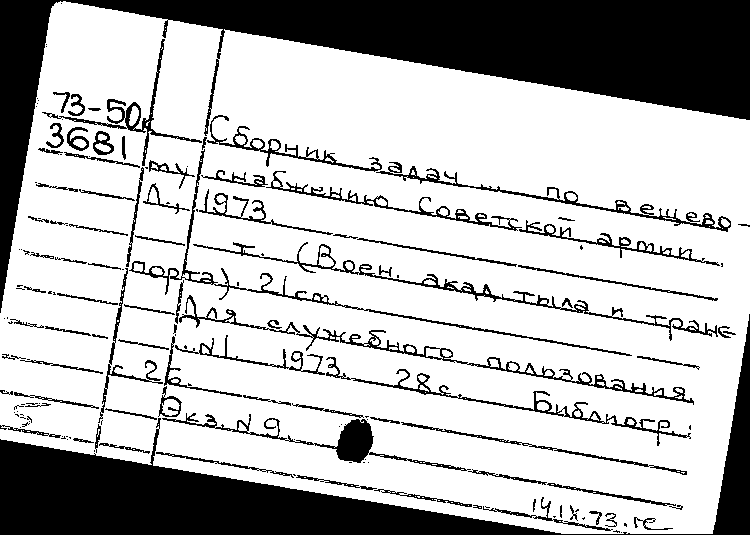 73-50к
3681
Сборник задач ... по вещево-
му снабжению Советской армии.
Л., 1973.
т. (Воен. акад. тыла и транс
порта). 21 см.
Для служебного пользования.
..N1. 1973. 28с. Библиогр.:
с 26.
Экз. N 9.
14.IX.73.